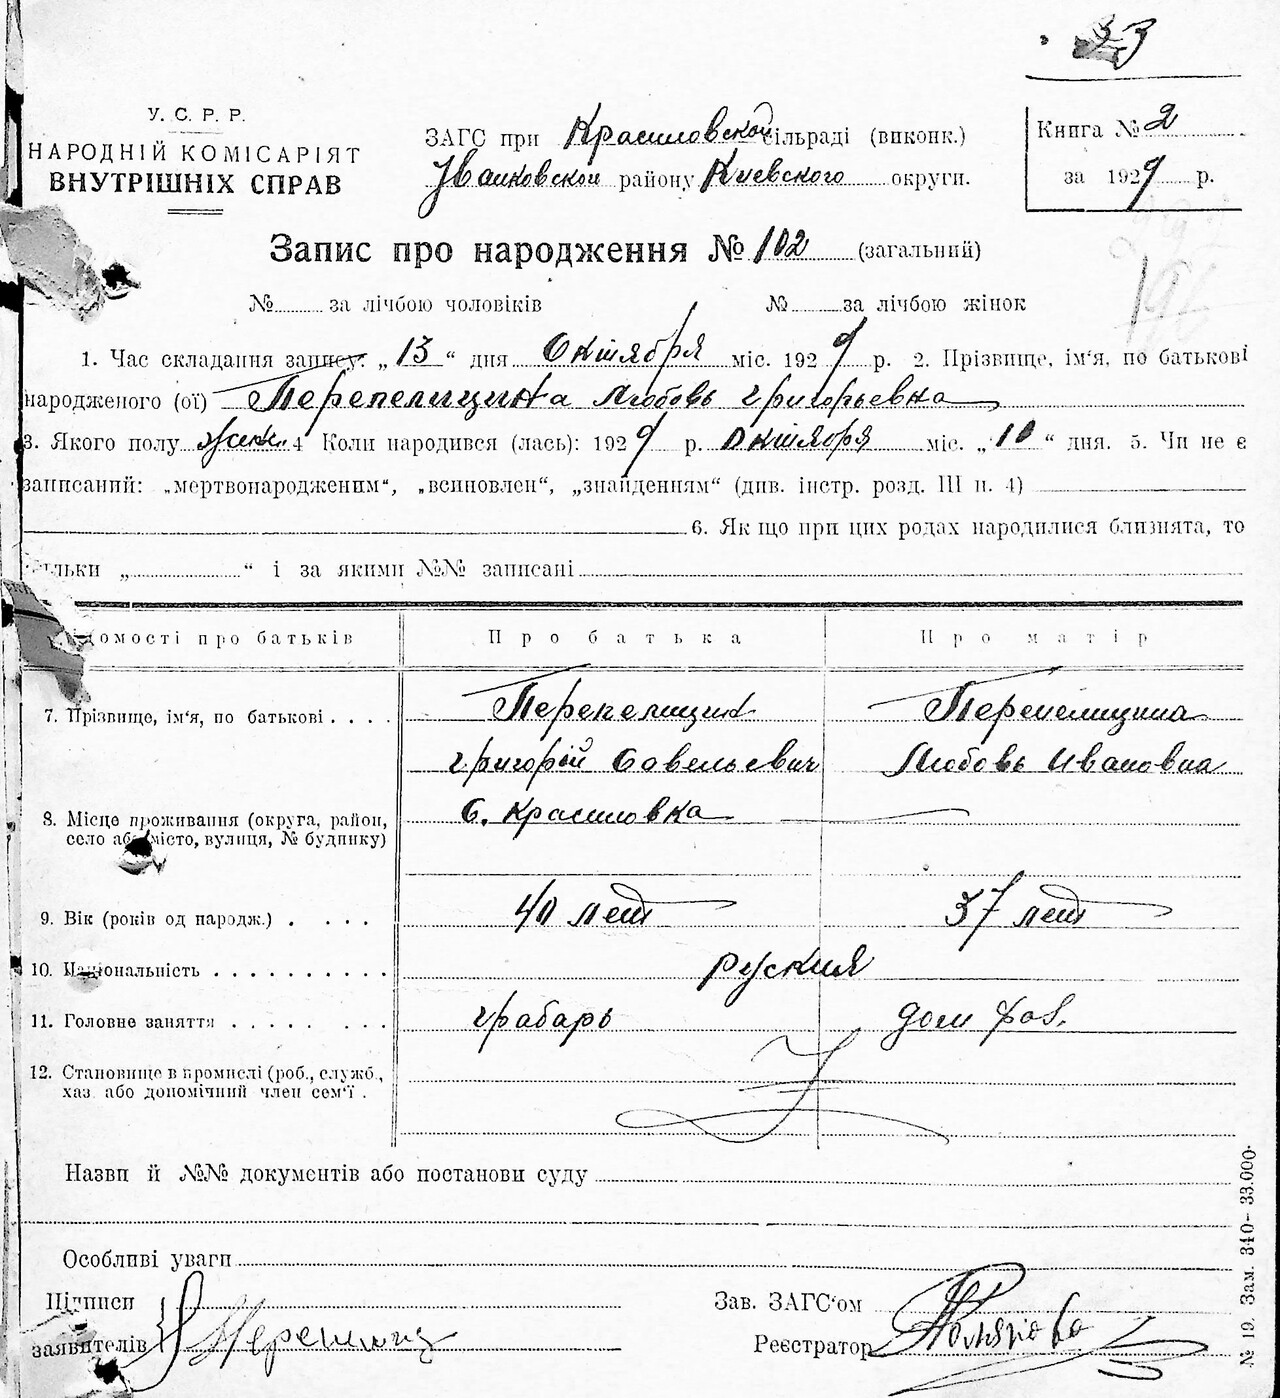 33
У. С. Р. Р.
НАРОДНІЙ КОМІСАРІЯТ
ВНУТРІШНІХ СПРАВ
ЗАГС при Красиловской сільраді (виконк.)
Иванковской району Киевского округи.
Книга № 2
за 1929 р.
Запис про народження № 102 (загальний)
196
№ за лічбою чоловіків № за лічбою жінок
1. Час складання запису: „13“ дня Октября міс. 1929 р. 2. Прізвище, ім'я, по батькові
народженого (ої) Перепелицина Любовь Григорьевна
3. Якого полу жен. 4 Коли народився (лась): 1929 р. Октября міс. „10“ дня. 5. Чи не є
записаний: „мертвонародженим“, „всиновлен“, „знайденням“ (див. інстр. розд. III п. 4)
6. Як що при цих родах народилися близнята, то
кільки „ “ і за якими №№ записані
Відомості про батьків Про батька Про матір
7. Прізвище, ім'я, по батькові . . . . Перепелицин Перепелицина
Григорій Савельевич Любовь Ивановна
8. Місце проживання (округа, район, С. Красиловка
село або місто, вулиця, № будинку)
9. Вік (років од народж.) . . . . 40 лет 37 лет
10. Національність . . . . . . . . . . руския
11. Головне заняття . . . . . . . . грабарь дом раб.
12. Становище в промислі (роб., служб.,
хаз або допомічний член сем'ї .
Назви й №№ документів або постанови суду
Особливі уваги
Підписи
заявителів Перепелиц
Зав. ЗАГС'ом
Реєстратор
№ 19. Зам. 340– 33.000.